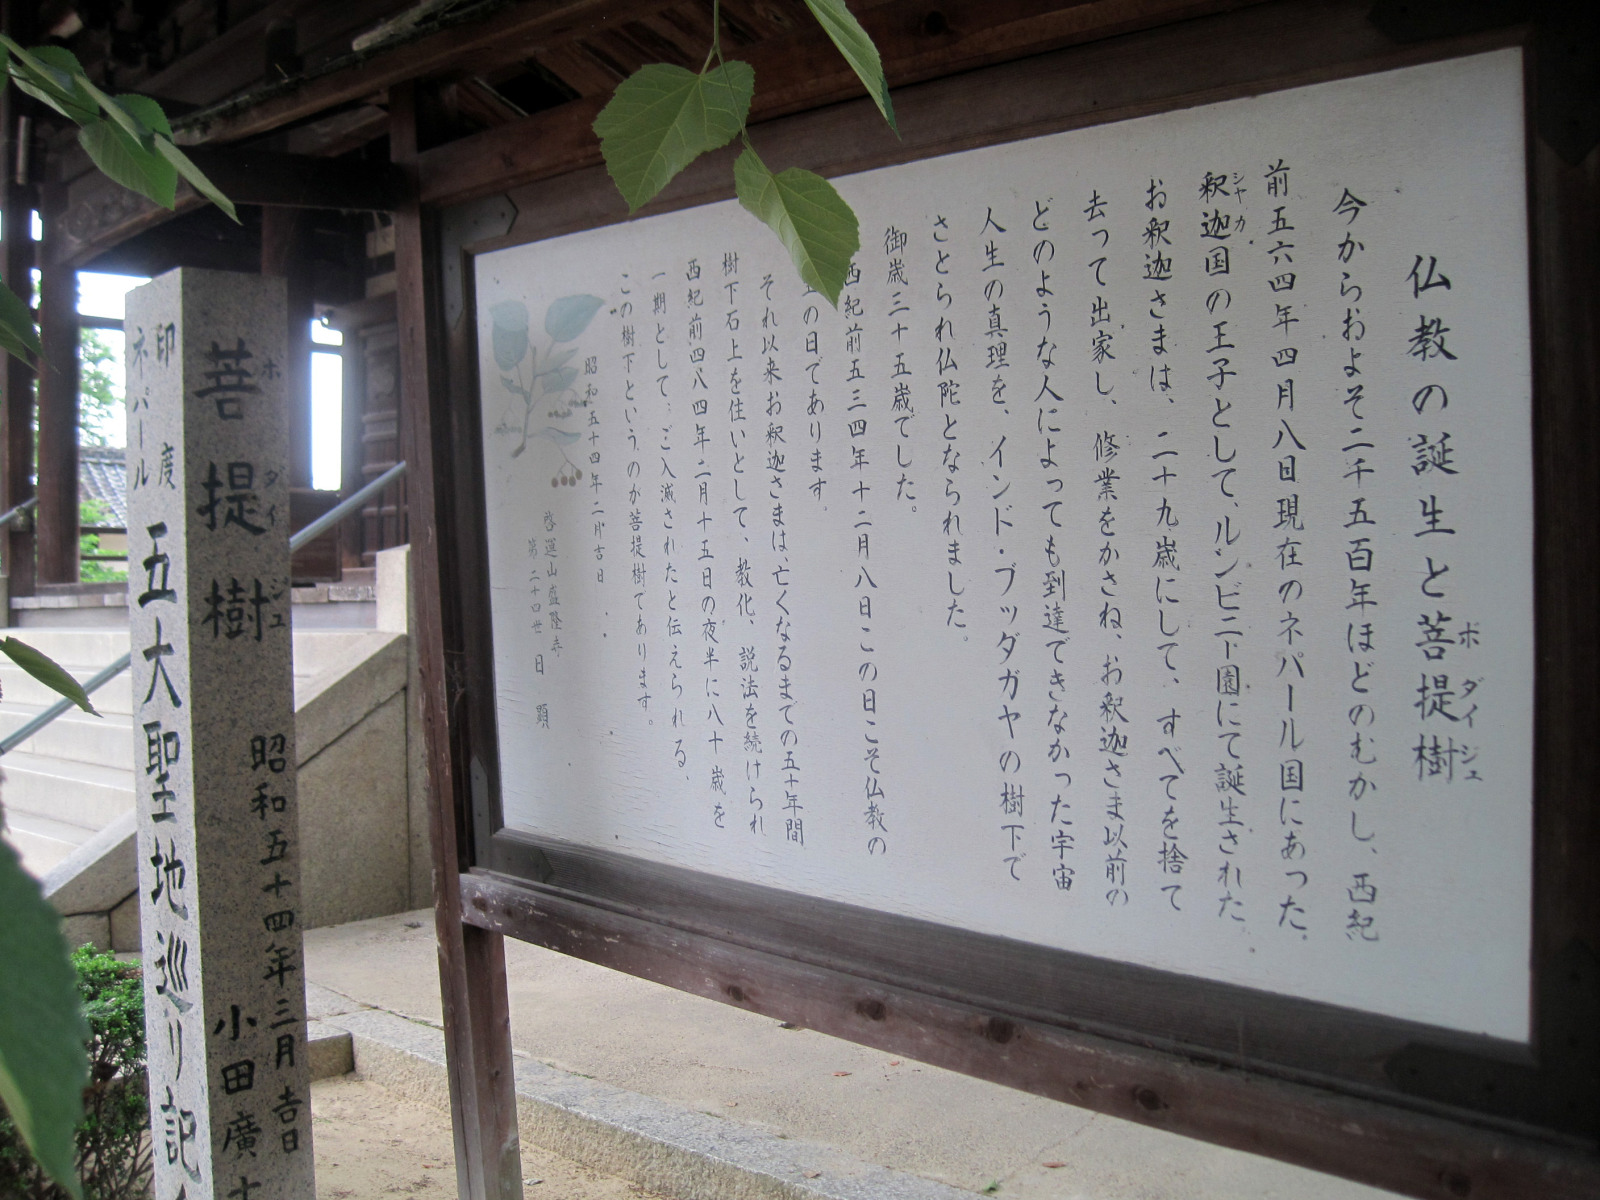 仏教の誕生と菩提樹
ボダイジュ
今からおよそ二千五百年ほどのむかし、西紀
前五六四年四月八日現在のネパール国にあった
釈迦国の王子として、ルンビニー園にて誕生された。
シャカ
お釈迦さまは、二十九歳にして、すべてを捨て
去って出家し、修業をかさね、お釈迦さま以前の
どのような人によっても到達できなかった宇宙
人生の真理を、インド・ブッダガヤの樹下で
さとられ仏陀となられました。
御歳三十五歳でした。
西紀前五三四年十二月八日この日こそ仏教の
の日であります。
それ以来お釈迦さまは、亡くなるまでの五十年間
樹下石上を住いとして、教化、説法を続けられ
西紀前四八四年二月十五日の夜半に八十歳を
一期として、ご入滅されたと伝えられる、
この樹下というのが菩提樹であります。
昭和五十四年二月吉日
啓運山盛隆寺
第二十四世 日顕
菩提樹
ホダイジュ
昭和五十四年三月吉日
小田廣
印度
ネパール
五大聖地巡り記